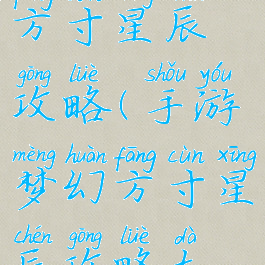 方寸星辰
gōng lüè shǒu yóu
攻略(手游
mèng huàn fāng cùn xīng
梦幻方寸星
chén gōng lüè dà
辰攻略大